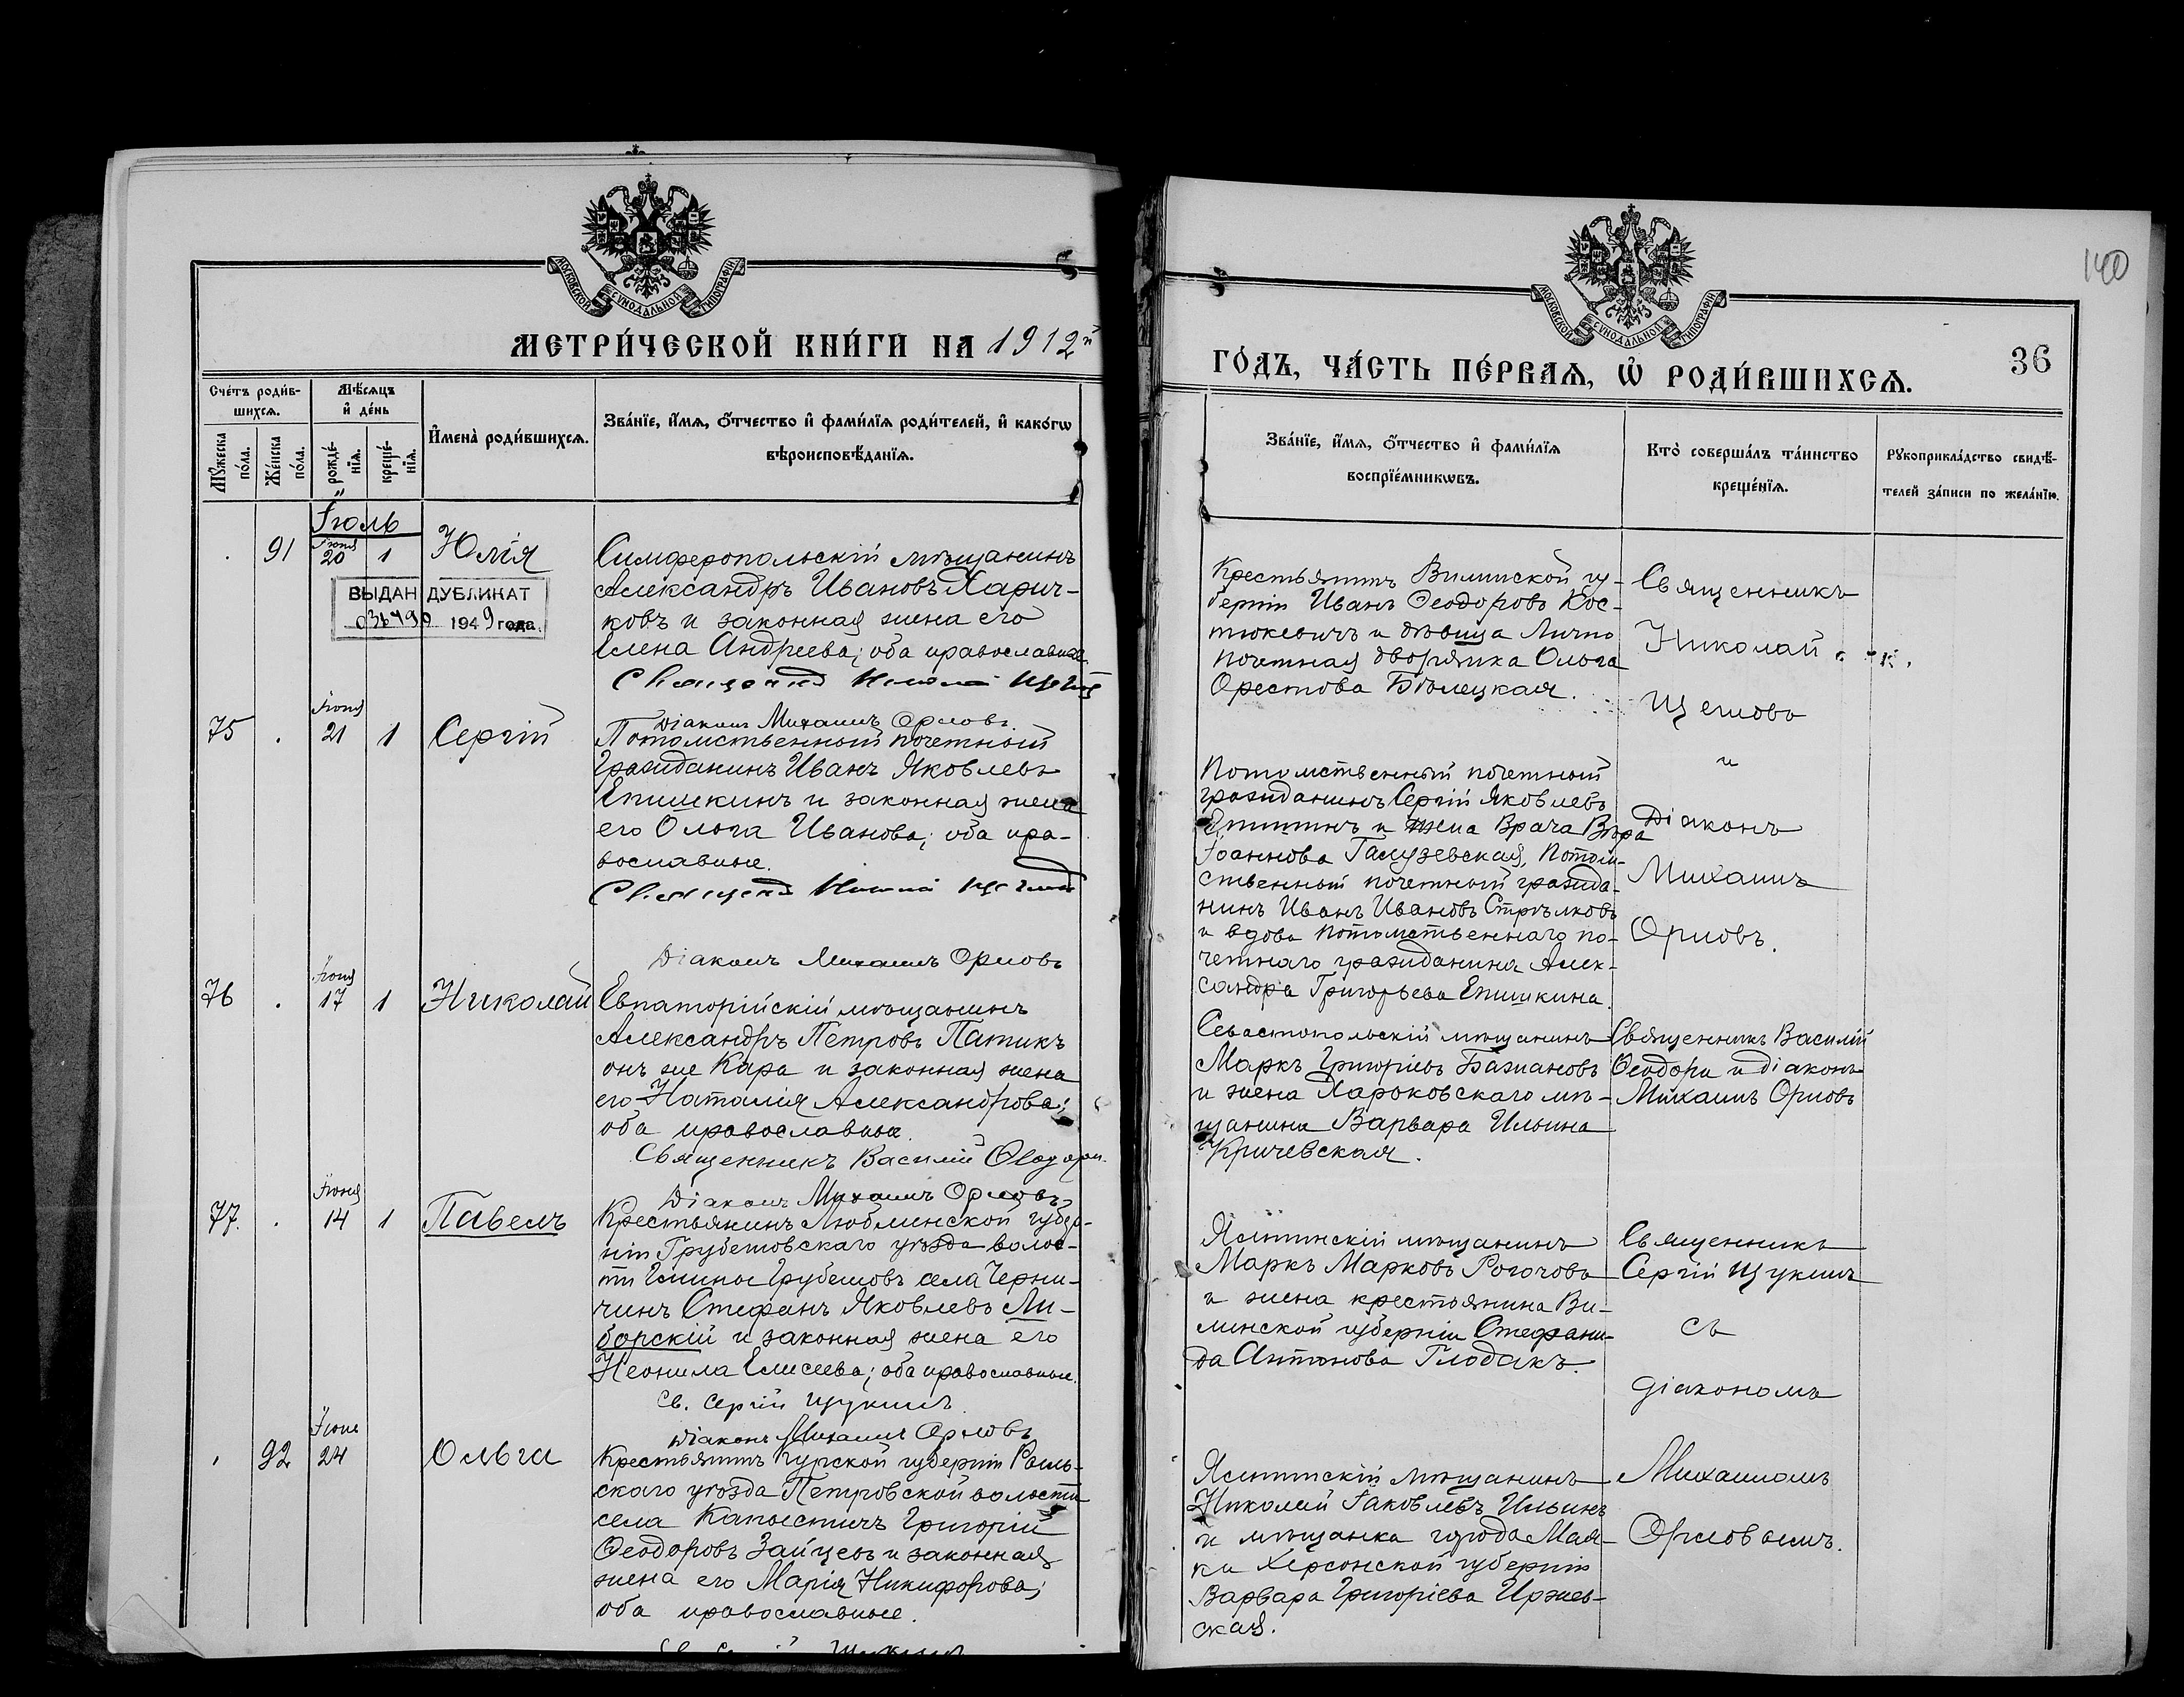 МОСКОВСКОЙ СѴНОДАЛЬНОЙ ТИПОГРАФІИ
МЕТРИ́ЧЕСКОЙ КНИ́ГИ НА 1912й
Сче́тъ роди́в-
шихсѧ.
Мѣ́сѧцъ
и҆ де́нь
И҆мена̀ роди́вшихсѧ.
Зва́нїе, и҆́мѧ, ѻ҆́тчество и҆ фами́лїѧ роди́телей, и҆ како́гѡ
вѣроисповѣ́данїѧ.
Мꙋ́жеска
по́ла.
Же́нска
по́ла.
рожде́-
нїѧ.
креще́-
нїѧ.
Іюль
91
Іюня
20 1
Юлія
Симферопольскій мѣщанинъ
Александръ Ивановъ Харич-
ковъ и законная жена его
Елена Андреева; оба православные.
Священникъ Николай Щегловъ
Діаконъ Михаилъ Орловъ
ВЫДАН ДУБЛИКАТ
1949 года.
75
Іюня
21 1
Сергій
Потомственный почетный
гражданинъ Иванъ Яковлевъ
Епишкинъ и законная жена
его Ольга Иванова; оба пра-
вославные.
Священникъ Николай Щегловъ
Діаконъ Михаилъ Орловъ
76
Іюня
17 1
Николай
Евпаторійскій мѣщанинъ
Александръ Петровъ Патикъ
онъ же Кара и законная жена
его Наталія Александрова;
оба православные.
Священникъ Василій Ѳеодори.
Діаконъ Михаилъ Орловъ
77.
Іюня
14 1
Павелъ
Крестьянинъ Люблинской губер-
ніи Грубешовскаго уѣзда волос-
ти Гмины Грубешовъ села Черни-
чинъ Стефанъ Яковлевъ Ли-
борскій и законная жена его
Неонила Елисеева; оба православные.
Св. Сергій Щукинъ
Діаконъ Михаилъ Орловъ
92
Іюня
24
Ольга
Крестьянинъ Курской губерніи Рыль-
скаго уѣзда Петровской волости
села Капыстичъ Григорій
Ѳеодоровъ Зайцевъ и законная
жена его Марія Никифорова;
оба православные.
Св. Сергій Щукинъ
140
МОСКОВСКОЙ СѴНОДАЛЬНОЙ ТИПОГРАФІИ
ГО́ДЪ, ЧА́СТЬ ПЕ́РВАѦ, Ѡ҆ РОДИ́ВШИХСѦ.
36
Зва́нїе, и҆́мѧ, ѻ҆́тчество и҆ фами́лїѧ
воспрїе́мникѡвъ.
Кто̀ соверша́лъ та́инство
креще́нїѧ.
Рꙋкоприкла́дство свидѣ́-
телей за́писи по жела́нїю.
Крестьянинъ Виленской гу-
берніи Иванъ Ѳеодоровъ Кос-
тюкевичъ и дѣвица Лично
почетная дворянка Ольга
Орестова Бѣлецкая.
Священникъ
Николай
Щегловъ
и
Діаконъ
Михаилъ
Орловъ.
Потомственный почетный
гражданинъ Сергій Яковлевъ
Епишкинъ и жена врача Вѣра
Іоаннова Галузевская, Потом-
ственный почетный гражда-
нинъ Иванъ Ивановъ Стрѣлковъ
и вдова потомственнаго по-
четнаго гражданина Алек-
сандра Григорьева Епишкина.
Севастопольскій мѣщанинъ
Маркъ Григоріевъ Бажановъ
и жена Харьковскаго мѣ-
щанина Варвара Ильина
Кричевская.
Священникъ Василій
Ѳеодори и діаконъ
Михаилъ Орловъ
Ялтинскій мѣщанинъ
Маркъ Марковъ Рогочовъ
и жена крестьянина Ви-
ленской губерніи Стефани-
да Антонова Глодакъ.
Священникъ
Сергій Щукинъ
съ
діакономъ
Михаиломъ
Орловымъ.
Ялтинскій мѣщанинъ
Николай Іаковлевъ Ильинъ
и мѣщанка города Мая-
ки Херсонской губерніи
Варвара Григоріева Иржев-
ская.